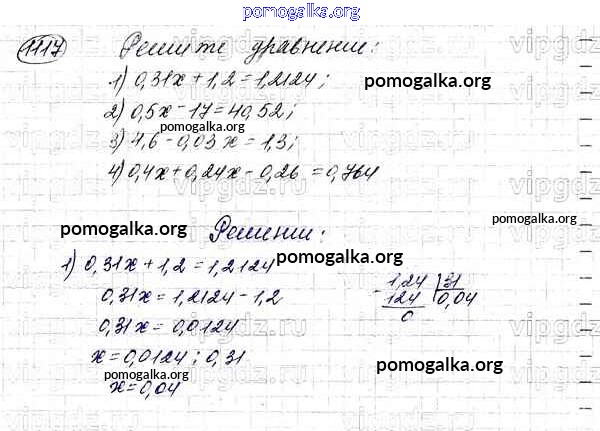 pomogalka.org
1117 Решите уравнение:
1) 0,31x + 1,2 = 1,2124;
pomogalka.org
2) 0,5x - 17 = 40,52;
pomogalka.org
3) 4,6 - 0,03x = 1,3;
4) 0,4x + 0,24x - 0,26 = 0,764
pomogalka.org
pomogalka.org
Решение:
1) 0,31x + 1,2 = 1,2124
pomogalka.org
0,31x = 1,2124 - 1,2
- 1,24 31
124 0,04
0
0,31x = 0,0124
x = 0,0124 : 0,31
pomogalka.org
pomogalka.org
x = 0,04
vipgdz.ru